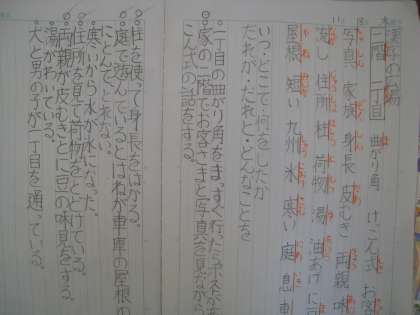 漢字の広場
二階 一丁目 曲がり角 けこん式 お客
写真 家族 身長 皮むき 両親 味
流し 住所 柱 荷物 湯 油あげ に豆
屋根 短い 九州 氷 寒い 庭 息
いつ・どこで・何をしたか
だれが・だれと・どんなことを
一丁目の曲がり角をまっすぐ行ったらポストがあ
家の二階でお客さまと写真を見ながら
こん式の話をする。
柱を使って身長をはかる。
庭で遊んでいるとはねが車庫の屋根の
にとんで、とれない。
寒いから水が氷になった。
住所を見て荷物をとどけている。
両親が皮むきとに豆の味見をする。
湯がわいている。
犬と男の子が一丁目を通っている。